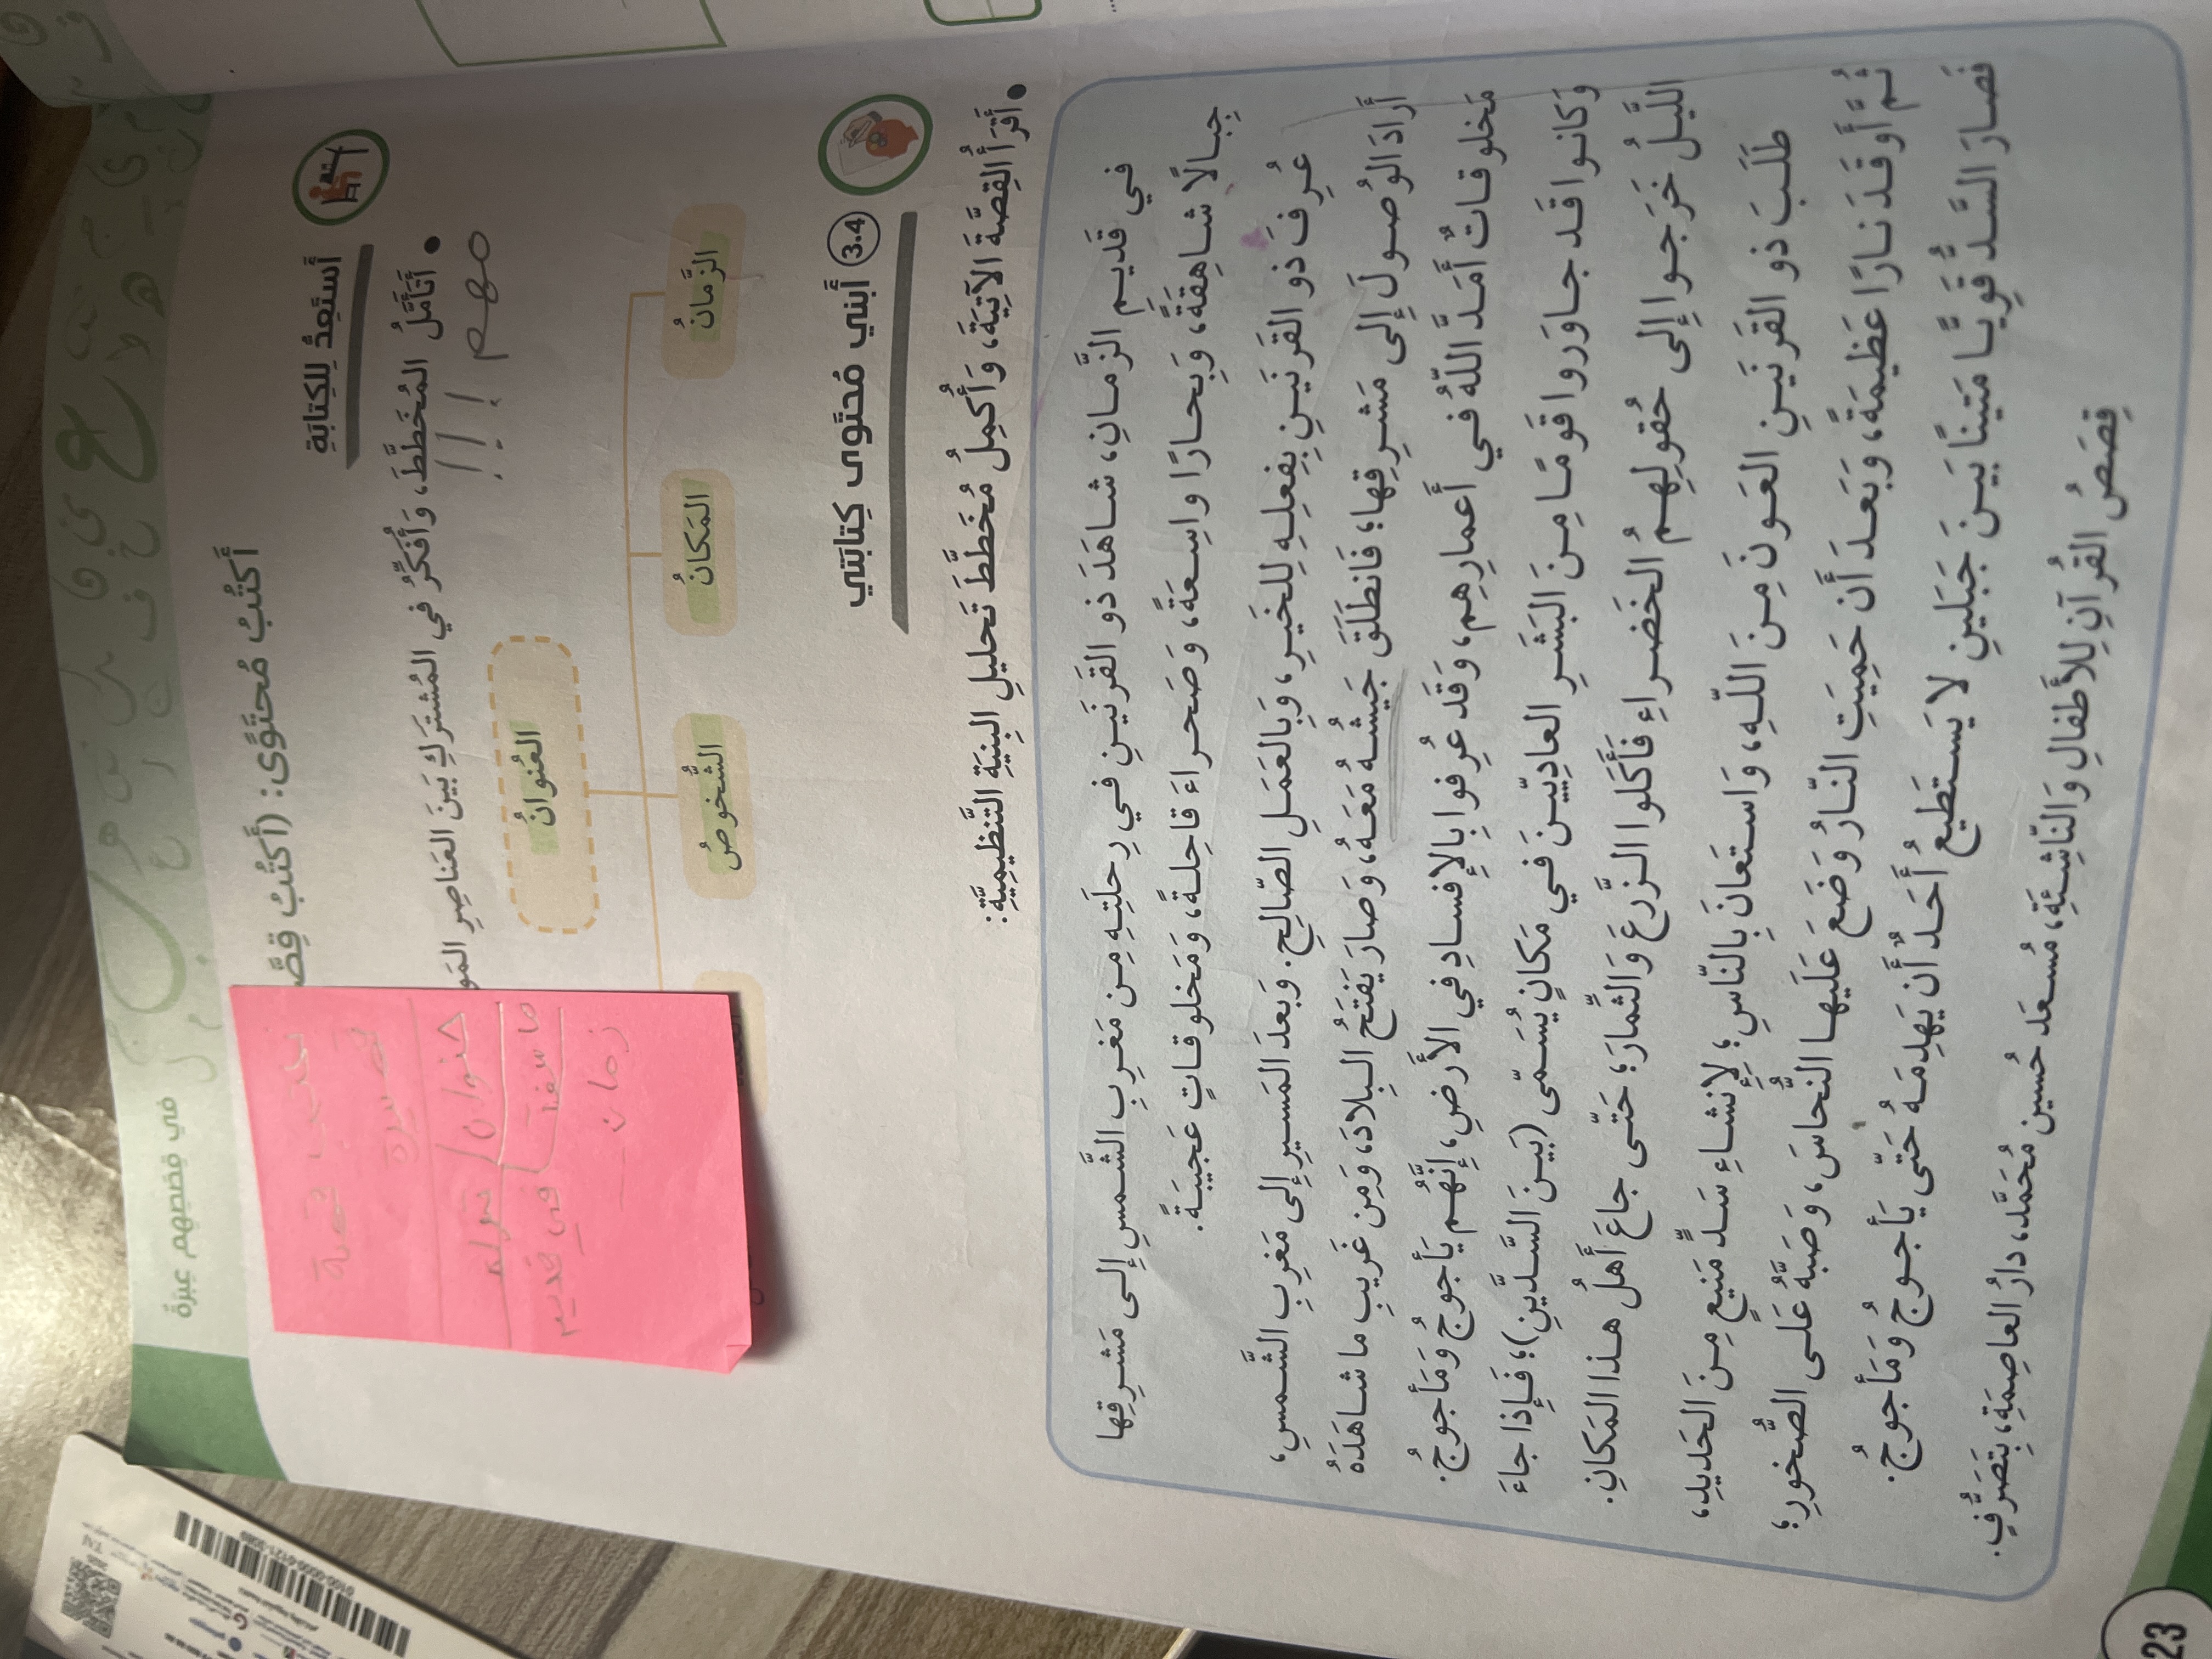 في قصصهم عبرة
أَكتُبُ مُحتَوًى: (أَكتُبُ قِصَّ
أَستَعِدُّ لِلكِتابَةِ
• أَتَأَمَّلُ المُخَطَّطَ، وَأُفَكِّرُ في المُشتَرَكِ بَينَ العَناصِرِ المَو
مهم !!!
العُنوانُ
الزَّمانُ
المَكانُ
الشُّخوصُ
نكتب قصة
قصيرة
عنوان
في قديم
زمان
3.4 أَبني مُحتَوى كِتابَتي
• أَقرَأُ القِصَّةَ الآتِيَةَ، وَأُكمِلُ مُخَطَّطَ تَحليلِ البِنيَةِ التَّنظيمِيَّةِ:
في قَديمِ الزَّمانِ، شاهَدَ ذو القَرنَينِ في رِحلَتِهِ مِن مَغرِبِ الشَّمسِ إِلى مَشرِقِها
جِبالًا شاهِقَةً، وَبِحارًا واسِعَةً، وَصَحراءَ قاحِلَةً، وَمَخلوقاتٍ عَجيبَةً.
عُرِفَ ذو القَرنَينِ بِفِعلِهِ لِلخَيرِ، وَبِالعَمَلِ الصّالِحِ. وَبَعدَ المَسيرِ إِلى مَغرِبِ الشَّمسِ،
أَرادَ الوُصولَ إِلى مَشرِقِها؛ فَانطَلَقَ جَيشُهُ مَعَهُ، وَصارَ يَفتَحُ البِلادَ، وَمِن غَريبِ ما شاهَدَهُ
مَخلوقاتٌ أَمَدَّ اللّهُ في أَعمارِهِم، وَقَد عُرِفوا بِالإِفسادِ في الأَرضِ، إِنَّهُم يَأجوجُ وَمَأجوجُ.
وَكانوا قَد جاوَروا قَومًا مِنَ البَشَرِ العادِيّينَ في مَكانٍ يُسَمّى (بَينَ السَّدَّينِ)؛ فَإِذا جاءَ
اللَّيلُ خَرَجوا إِلى حُقولِهِمُ الخَضراءِ فَأَكَلوا الزَّرعَ وَالثِّمارَ؛ حَتّى جاعَ أَهلُ هذا المَكانِ.
طَلَبَ ذو القَرنَينِ العَونَ مِنَ اللّهِ، وَاستَعانَ بِالنّاسِ؛ لِإِنشاءِ سَدٍّ مَنيعٍ مِنَ الحَديدِ،
ثُمَّ أَوقَدَ نارًا عَظيمَةً، وَبَعدَ أَن حَمِيَتِ النّارُ وَضَعَ عَلَيها النُّحاسَ، وَصَبَّهُ عَلى الصُّخورِ؛
فَصارَ السَّدُّ قَوِيًّا مَتينًا بَينَ جَبَلَينِ لا يَستَطيعُ أَحَدٌ أَن يَهدِمَهُ حَتّى يَأجوجُ وَمَأجوجُ.
قِصَصُ القُرآنِ لِلأَطفالِ وَالنّاشِئَةِ، مُسعَد حُسين مُحَمَّد، دارُ العاصِمَةِ، بِتَصَرُّفٍ.
23